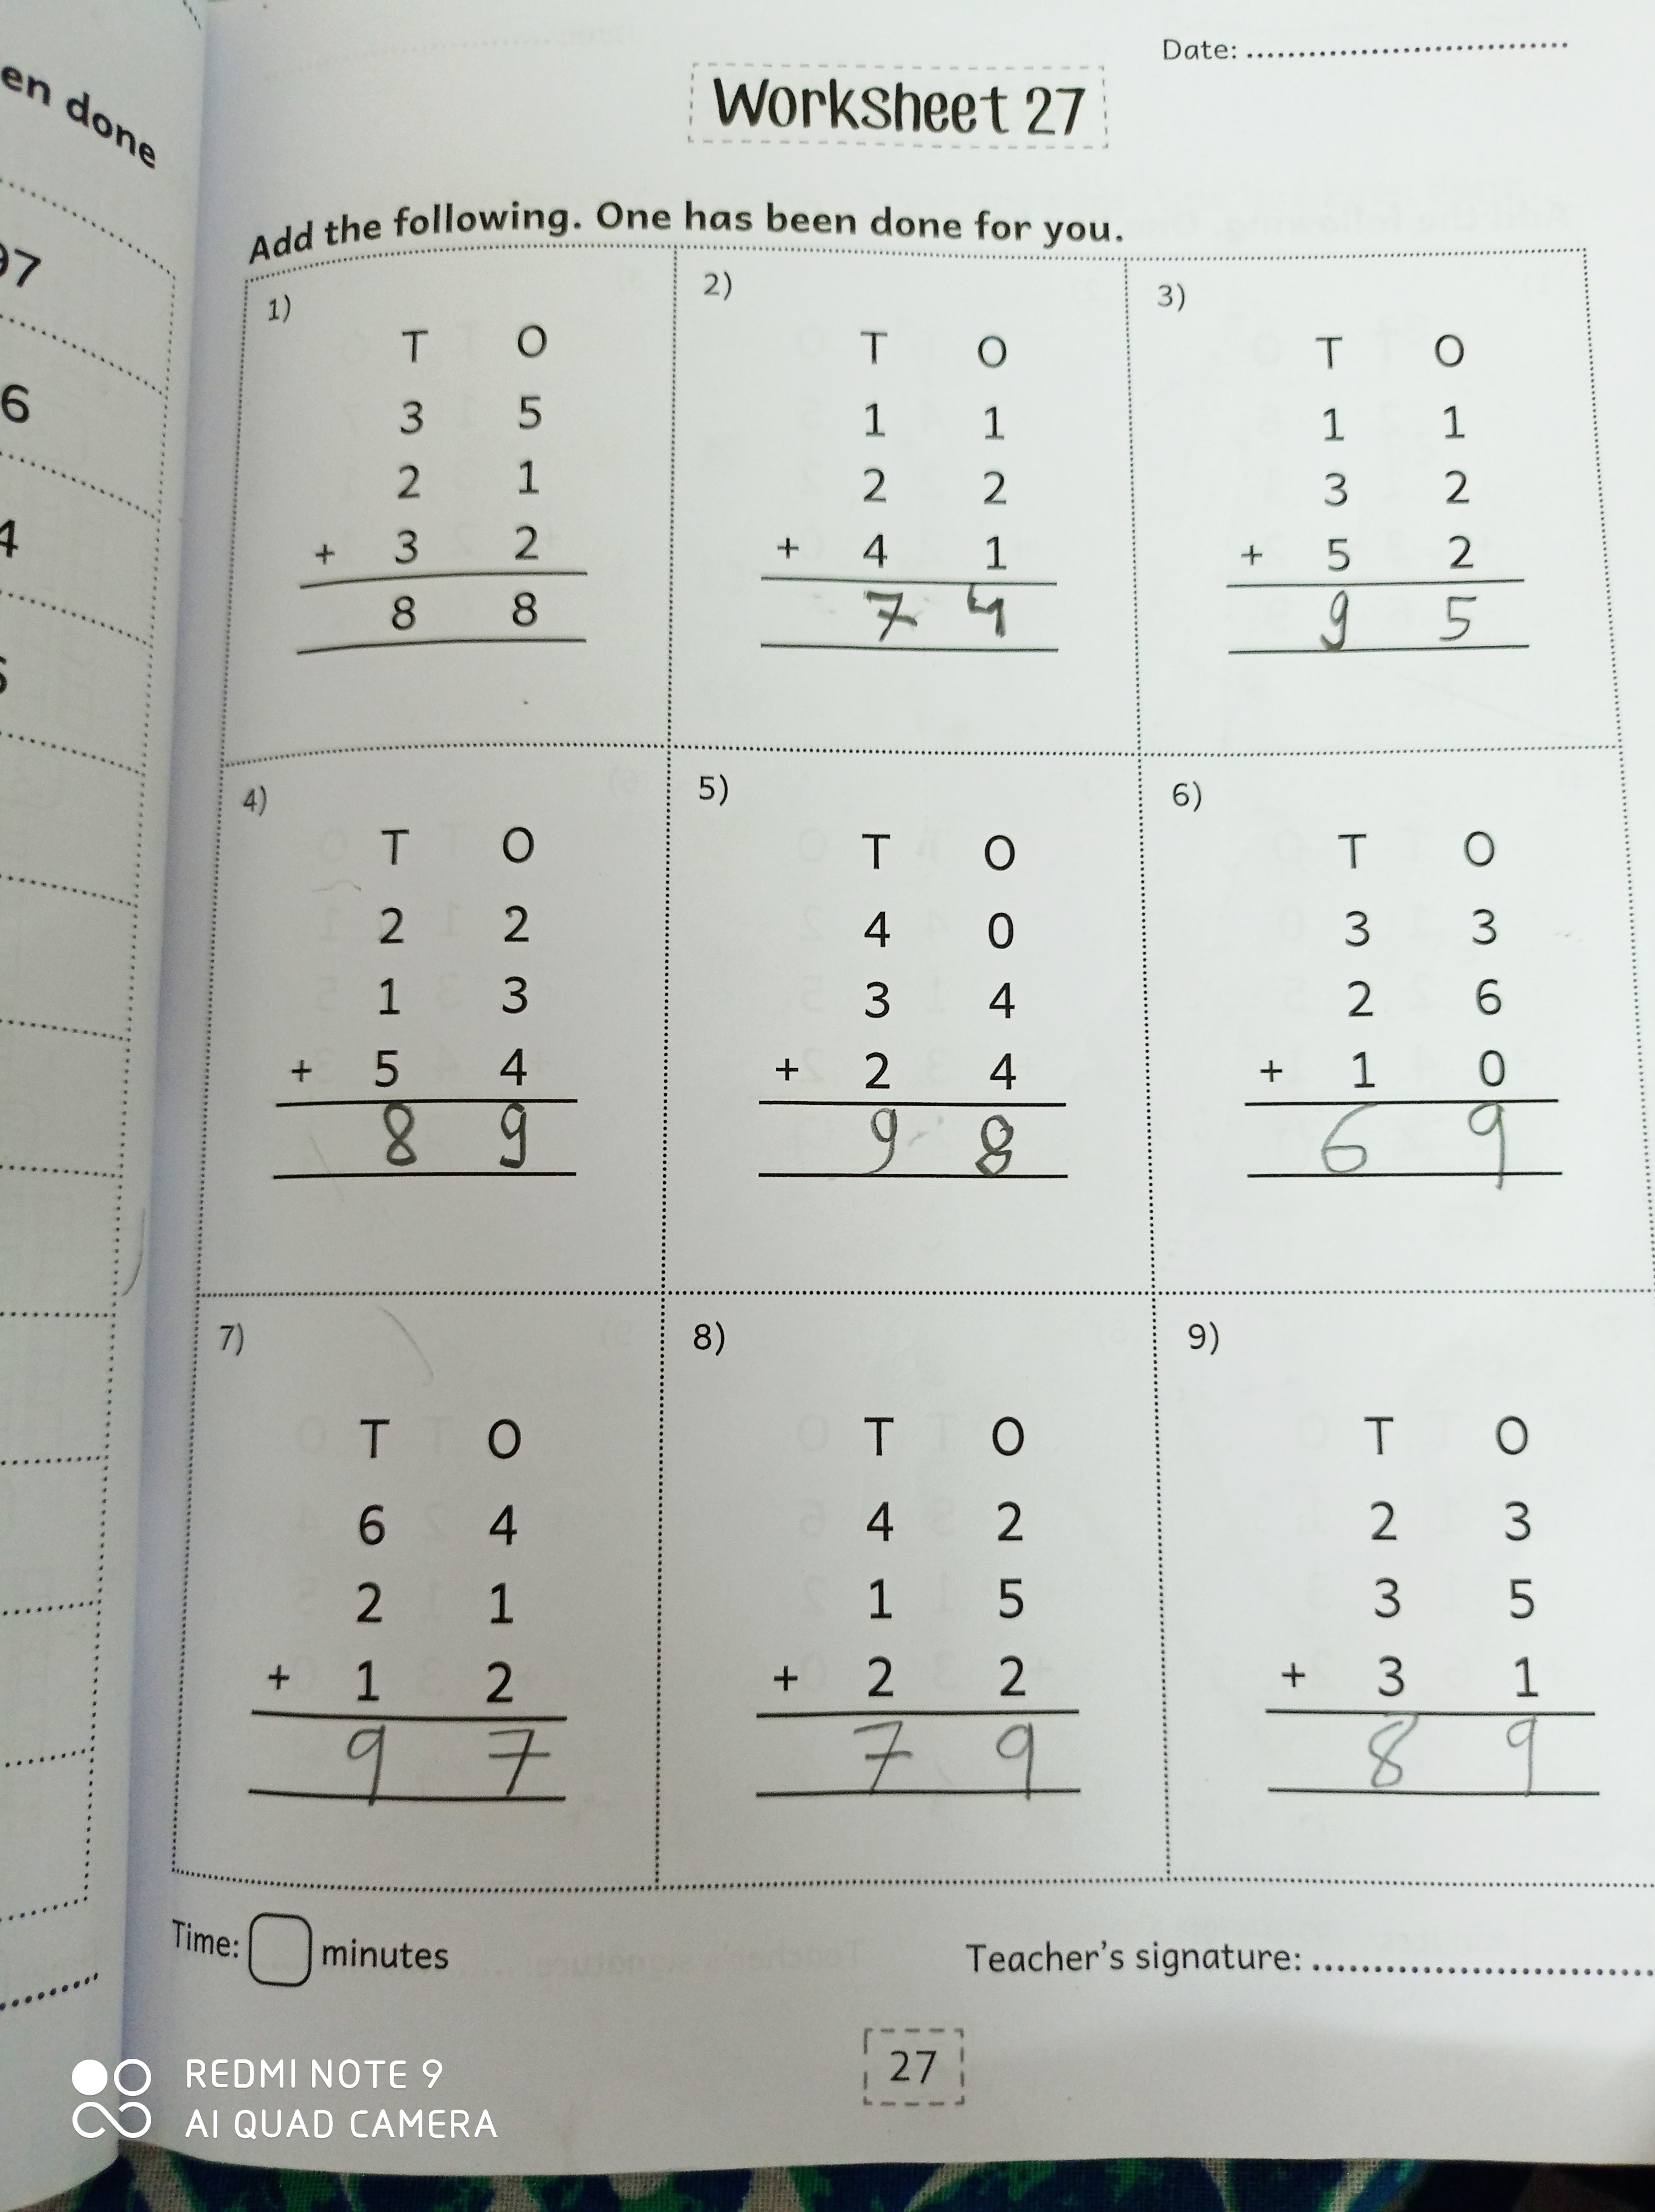 en done
97
6
4
Date: ..............................
Worksheet 27
Add the following. One has been done for you.
1)
T O
3 5
2 1
+ 3 2
8 8
2)
T O
1 1
2 2
+ 4 1
7 4
3)
T O
1 1
3 2
+ 5 2
9 5
4)
T O
2 2
1 3
+ 5 4
8 9
5)
T O
4 0
3 4
+ 2 4
9 8
6)
T O
3 3
2 6
+ 1 0
6 9
7)
T O
6 4
2 1
+ 1 2
9 7
8)
T O
4 2
1 5
+ 2 2
7 9
9)
T O
2 3
3 5
+ 3 1
8 9
Time: minutes
Teacher's signature: ..............................
27
REDMI NOTE 9
AI QUAD CAMERA